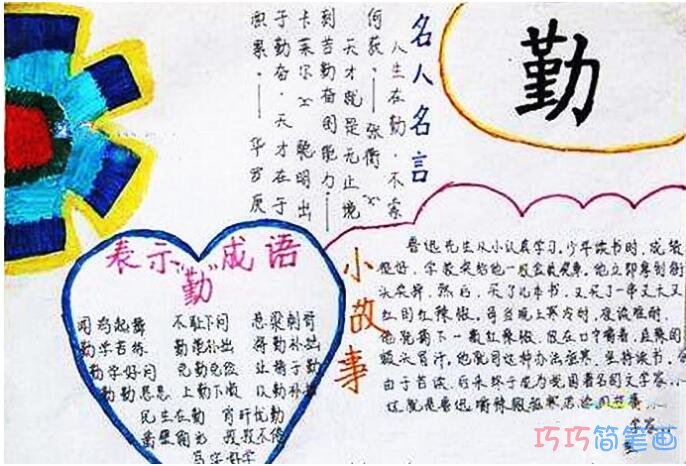 勤
名人名言
人生在勤·不索
何获。——张衡
天才就是无止境
刻苦勤奋的能力——
卡莱尔 聪明出
于勤奋·天才在于
积累·——华罗庚
表示"勤"成语
闻鸡起舞 不耻下问 悬梁刺
勤学苦练 勤能补拙 将勤补拙
勤学好问 克勤克俭 业精于勤
勤勤恳恳 上勤下 以勤补拙
民生在勤 宵旰忧勤
凿壁偷光 孜孜不倦
小故事
鲁迅先生从小认真学习。少年读书时，成绩
很好，学校奖给他一枚金质奖章。他立即拿到街
头卖掉，然后，买了几本书，又买了一串又大又
红的红辣椒。每当晚上寒冷时，夜读难耐，
他便摘下一颗红辣椒，放在口中嚼着，直辣的
额头冒汗，他就用这种办法驱寒，坚持读书，
由于苦读，后来终于成为我国著名的文学家
这就是鲁迅嚼辣椒驱寒
巧巧简笔画